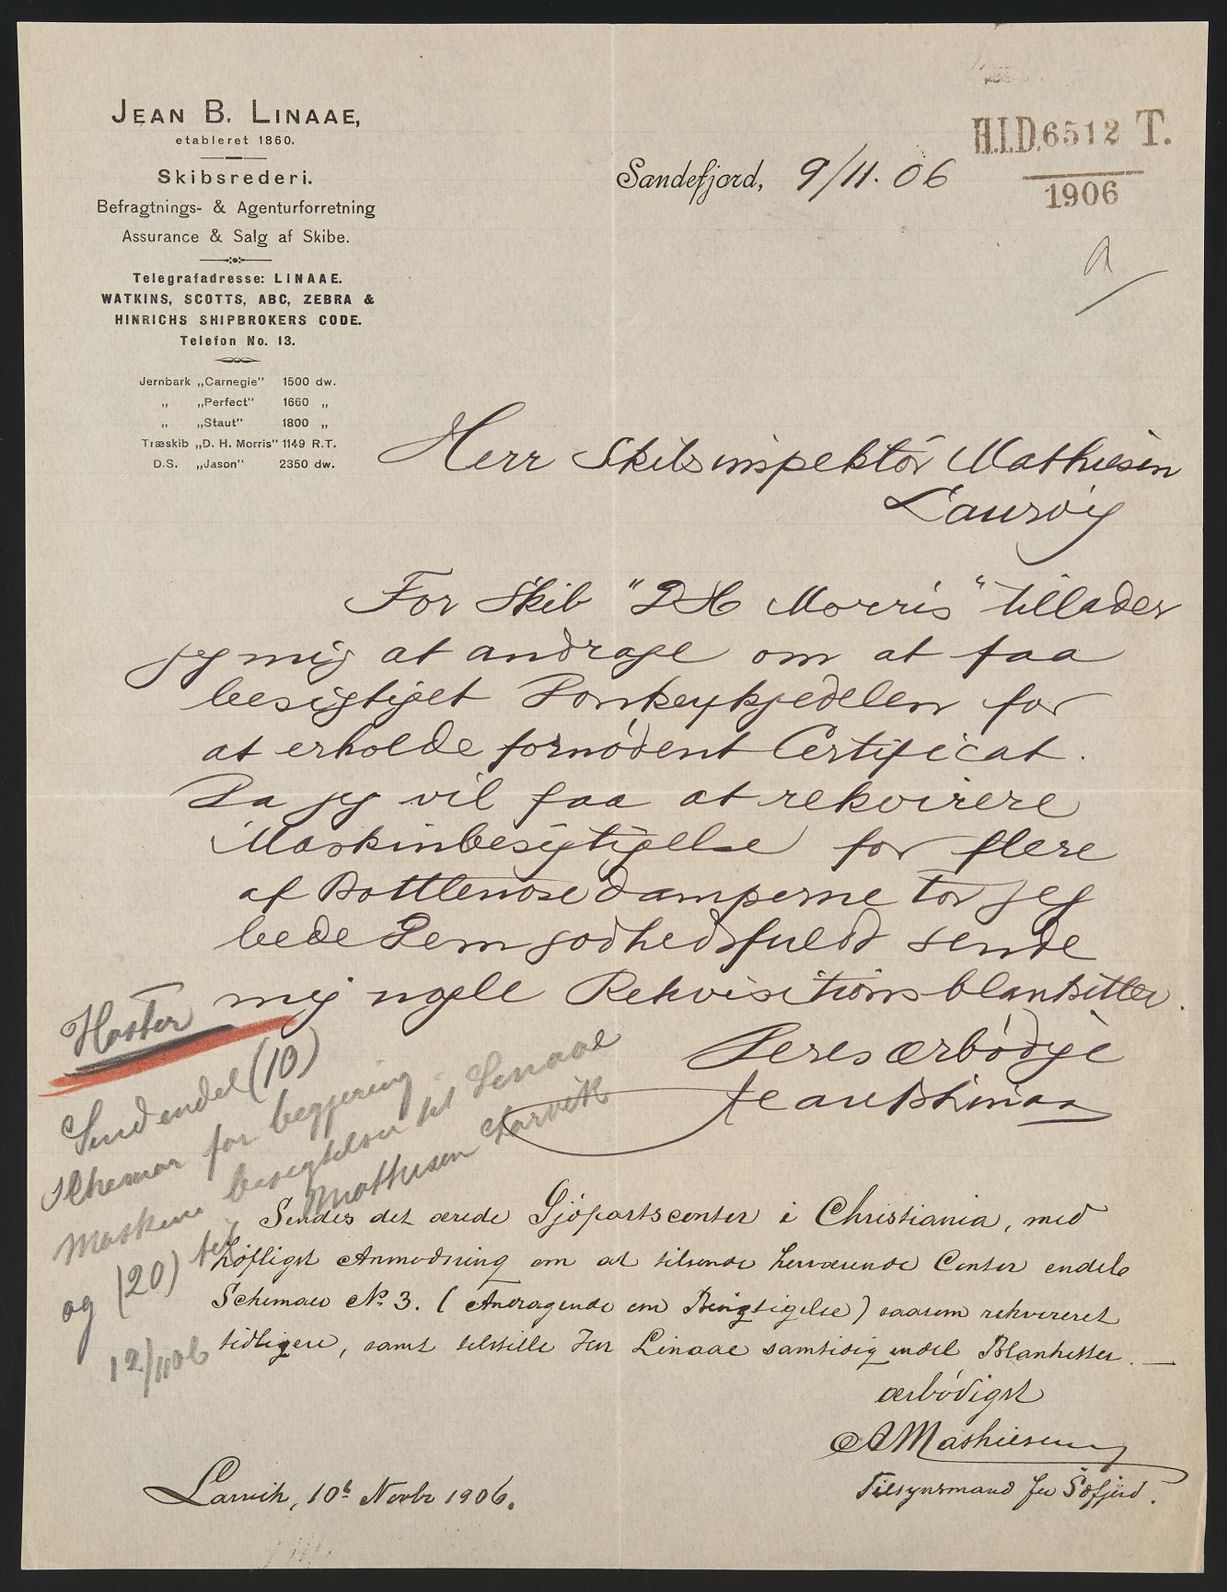 JEAN B. LINAAE,
etableret 1860.
Skibsrederi.
Befragtnings- & Agenturforretning
Assurance & Salg af Skibe.
Telegrafadresse: LINAAE.
WATKINS, SCOTTS, ABC, ZEBRA &
HINRICHS SHIPBROKERS CODE.
Telefon No. 13.
Jernbark „Carnegie" 1500 dw.
„ „Perfect" 1660 „
„ „Staut" 1800 „
Træskib „D. H. Morris" 1149 R.T.
D.S. „Jason" 2350 dw.
H.I.D. 6512 T.
1906
Sandefjord, 9/11. 06
a
Herr Skibsinspektör Mathiesen
Laurvig
For Skib "DH Morris" tillader
jeg mig at andrage om at faa
besigtiget Donkeykjedelen for
at erholde fornödent Certificat.
Da jeg vil faa at rekvirere
Maskinbesigtigelse for flere
af Bottlenosedamperne tör jeg
bede Dem godhedsfuldt sende
mig nogle Rekvisitionsblanketter.
Deres ærbödige
Jean B Linaae
Haster
Send endel (10)
Schemaer for begjering
maskin besigtelser til Linaae
og (20) til Mathisen Larvik
12/11 06
Sendes det ærede Sjöfartscontor i Christiania, med
höfligst Anmodning om at tilsende herværende Contor endele
Schemaer No 3. (Andragende om Besigtigelse) saasom rekvireret
tidligere, samt tilstille Herr Linaae samtidig endel Blanketter. —
ærbödigst
A Mathiesen
Tilsynsmand for Söfjord.
Larvik, 10de Novbr 1906.